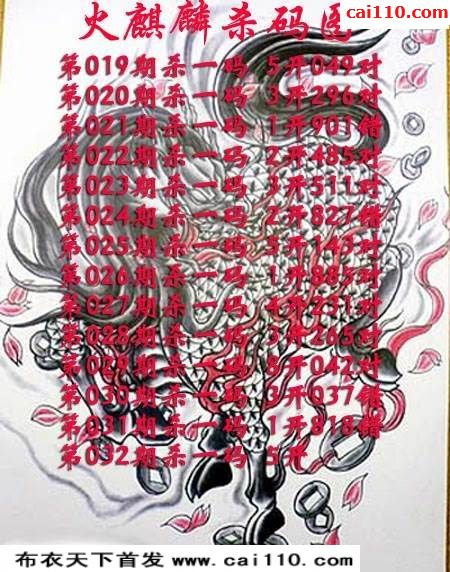 cai110.com
火麒麟杀码图
第019期杀一码 5开049对
第020期杀一码 3开296对
第021期杀一码 1开901错
第022期杀一码 2开485对
第023期杀一码 3开511对
第024期杀一码 2开827错
第025期杀一码 5开143对
第026期杀一码 1开885对
第027期杀一码 4开231对
第028期杀一码 3开265对
第029期杀一码 8开042对
第030期杀一码 3开037错
第031期杀一码 1开818错
第032期杀一码 5开
布衣天下首发 www.cai110.com